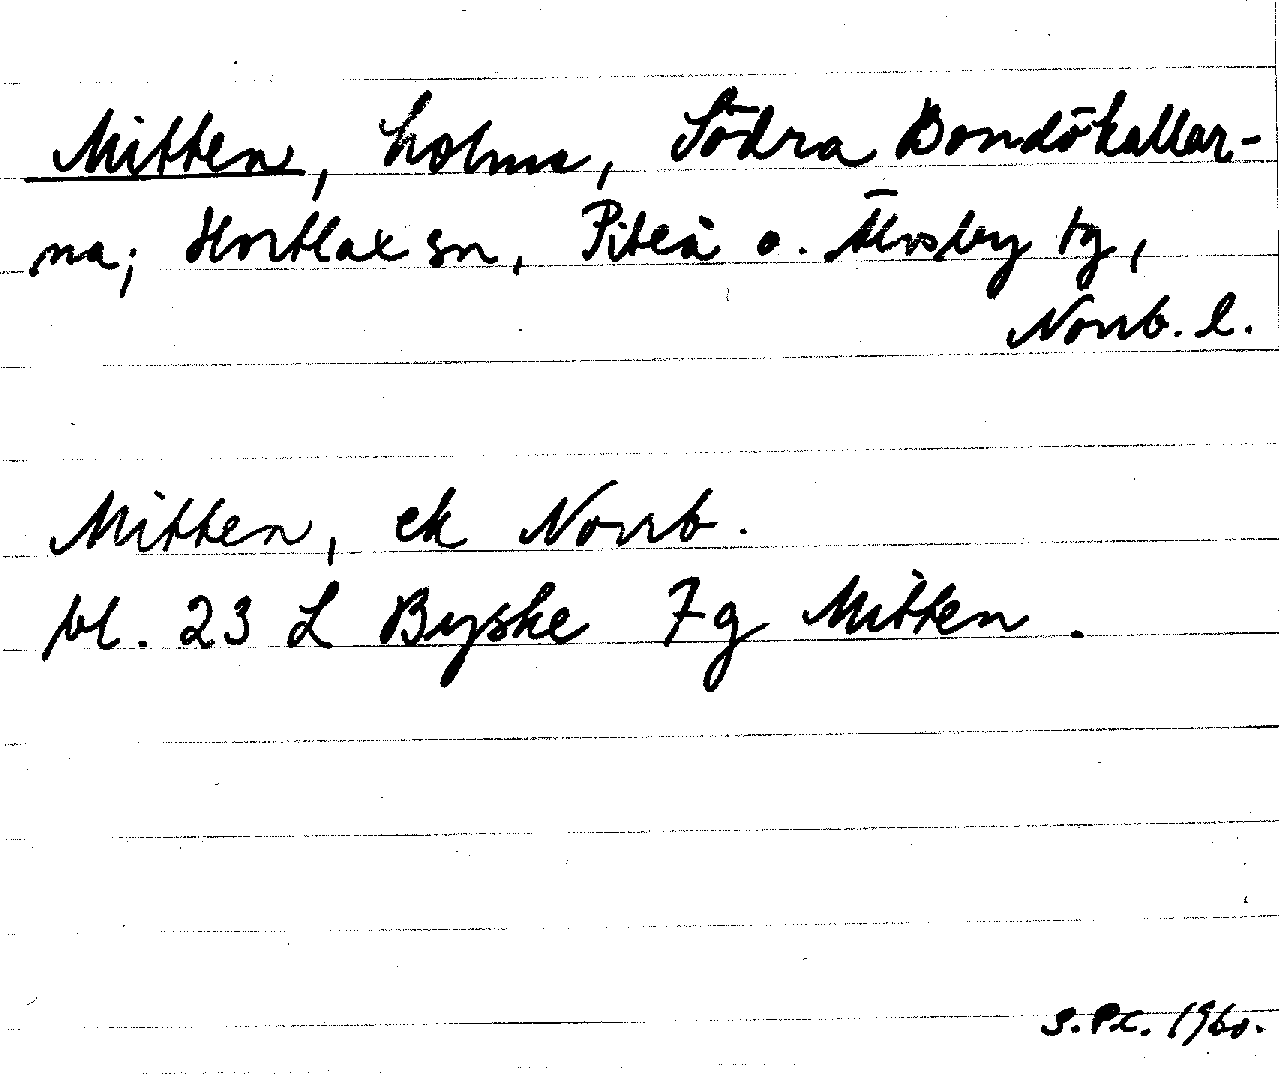 Mitten, holme, Södra Bondökallar-
na; Hortlax sn, Piteå o. Älvsby tg,
Norrb. l.
Mitten, ek Norrb.
bl. 23 L Byske 7g Mitten.
S.P.C. 1960.